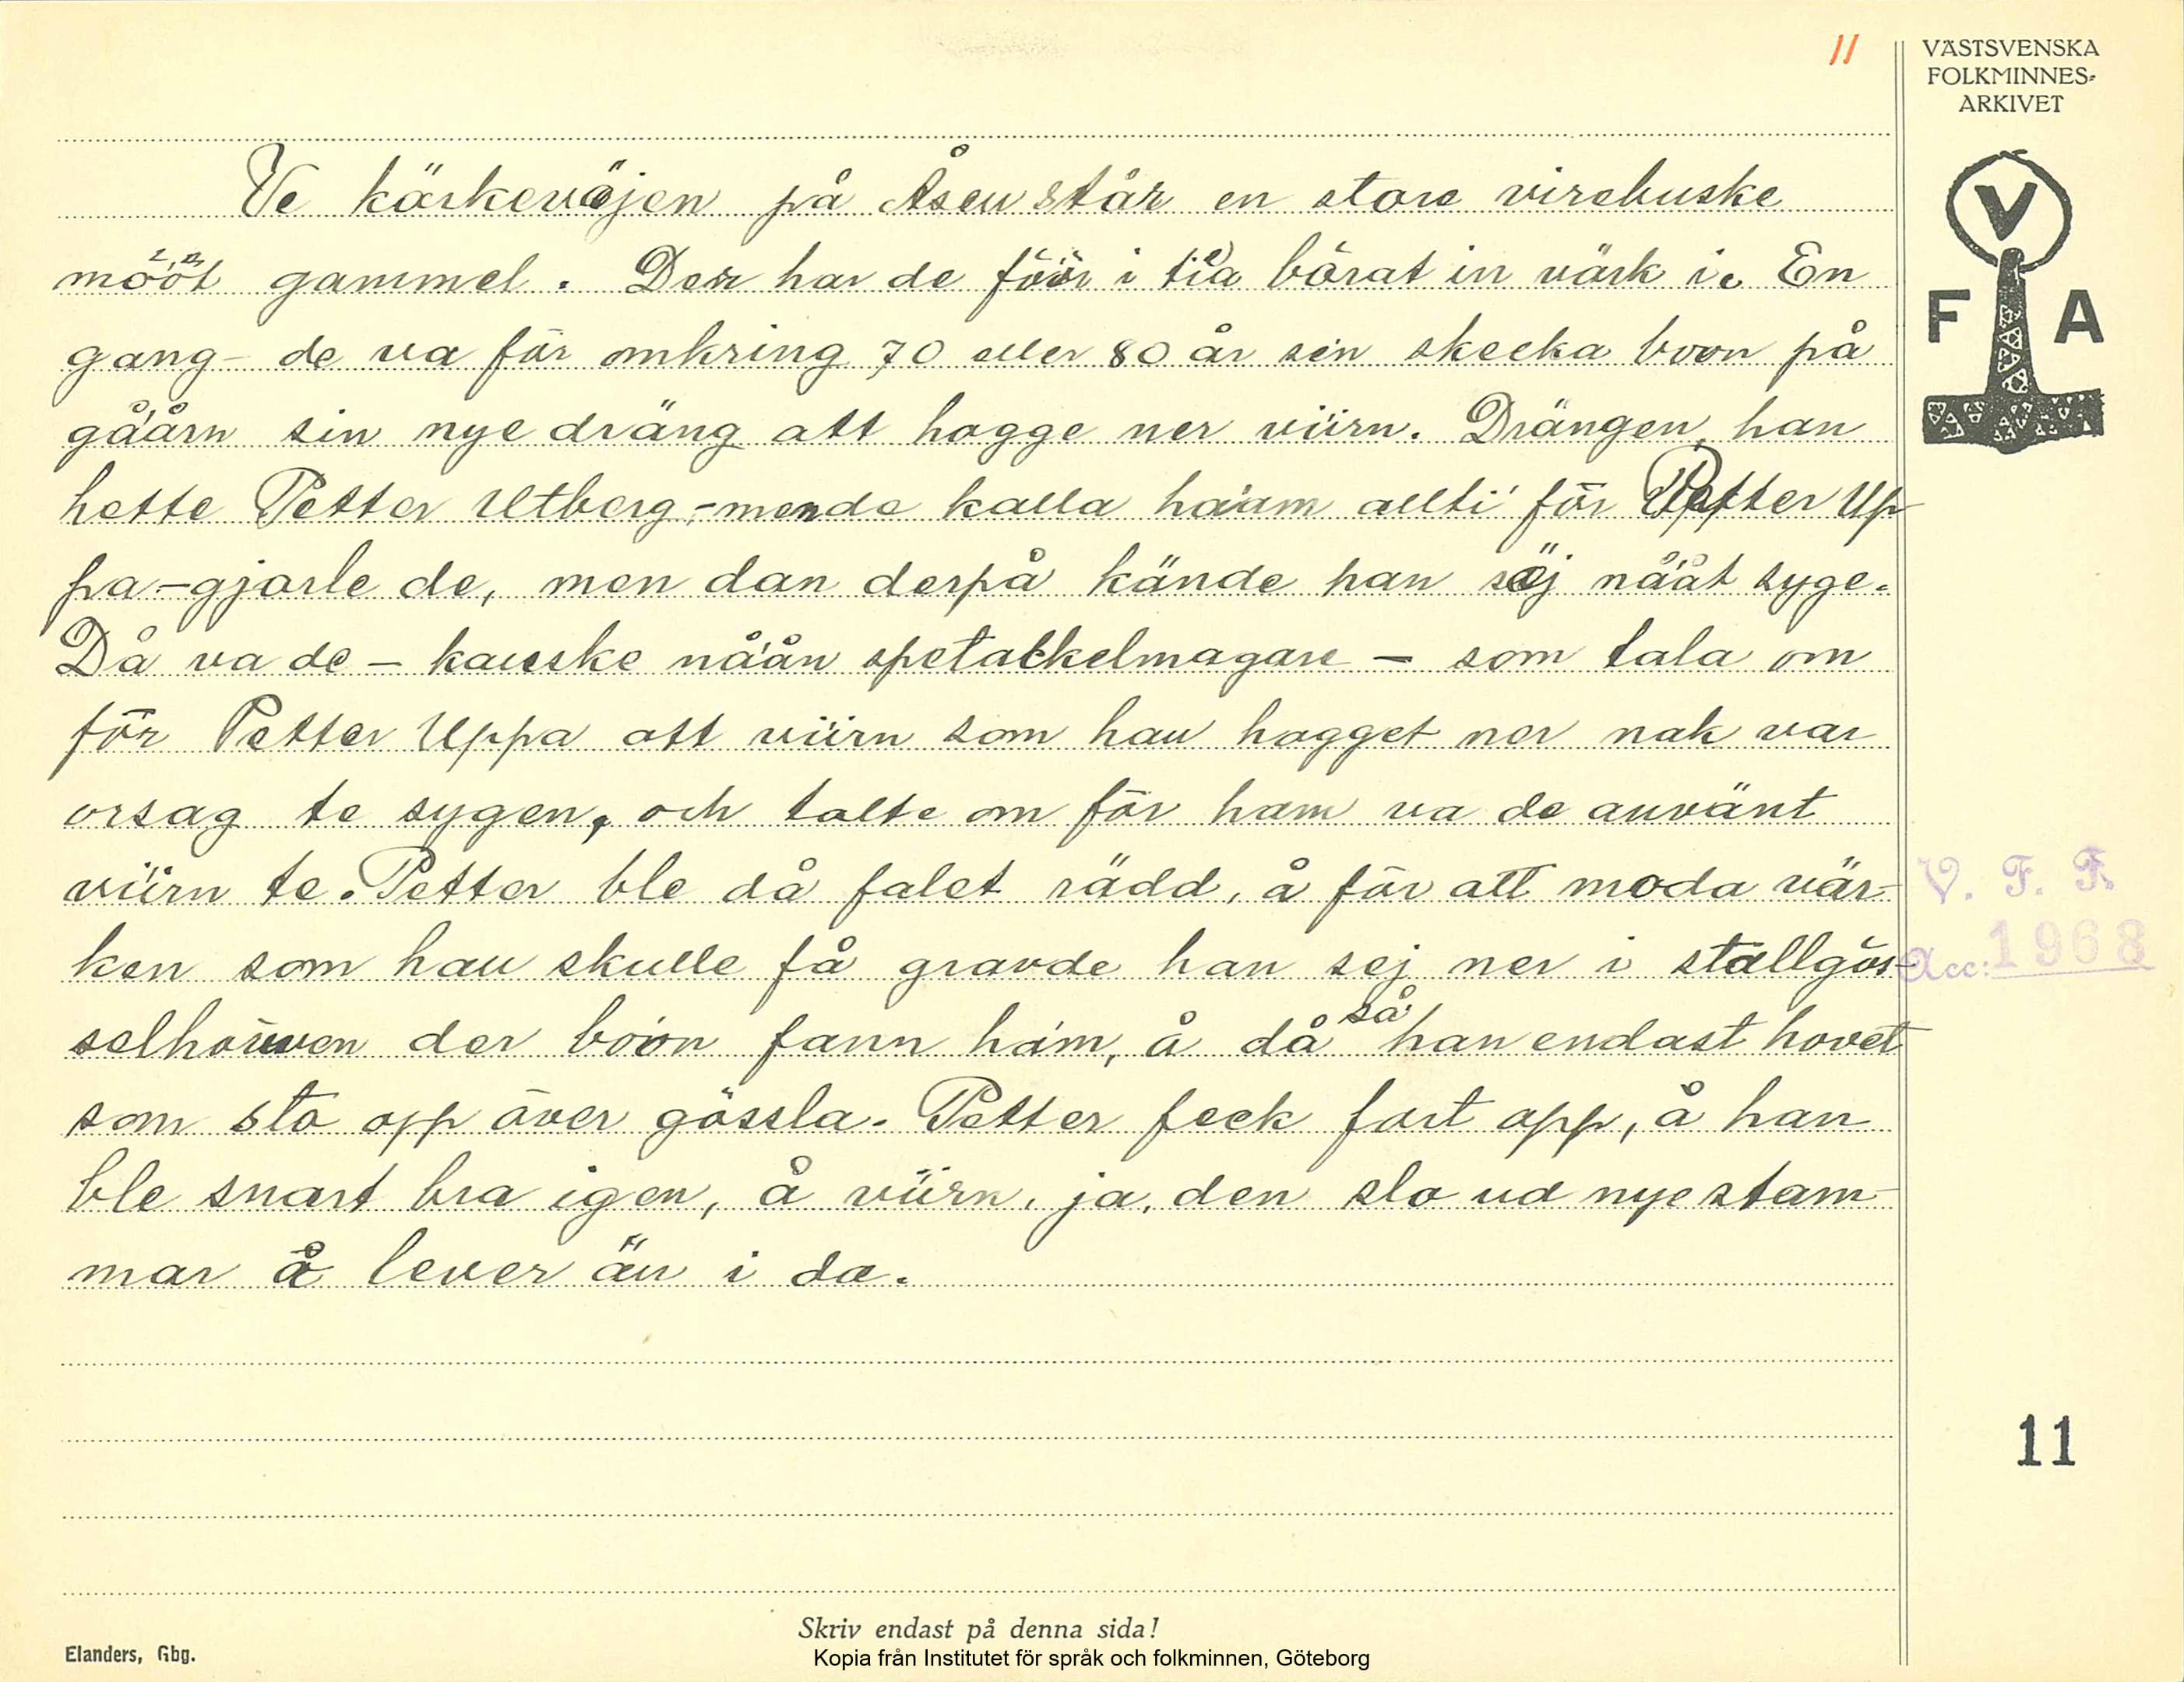 11
VÄSTSVENSKA
FOLKMINNES-
ARKIVET
V
F A
Ve kärkevöjen på Åsen står en store virebuske
mööt gammel. Der har de föör i tia börat in värk i. En
gang - de va för omkring 70 eller 80 år sin skecka boon på
gåårn sin nye dräng att hogge ner viirn. Drängen, han
hette Petter Utberg, - mende kalla haam allti för Petter Up
pa - gjorle de, men dan derpå kände han söj nååt syge.
Då va de - kanske nåån spetackelmagare - som tala om
för Petter Uppa att viirn som han hogget ner nok var
orsag te sygen, och talte om för ham va de använt
viirn te. Petter ble då falet rädd, å för att moda vär-
ken som han skulle få gravde han sej ner i stallgös-
selhöuven der boon fann häm, å då så han endast hovet
som sto opp över gössla. Petter feck fort opp, å han
ble snart bra igen, å viirn, ja, den slo ud nye stam-
mar å lever än i da.
V. F. F.
Acc: 1968
11
Skriv endast på denna sida!
Elanders, Gbg.
Kopia från Institutet för språk och folkminnen, Göteborg